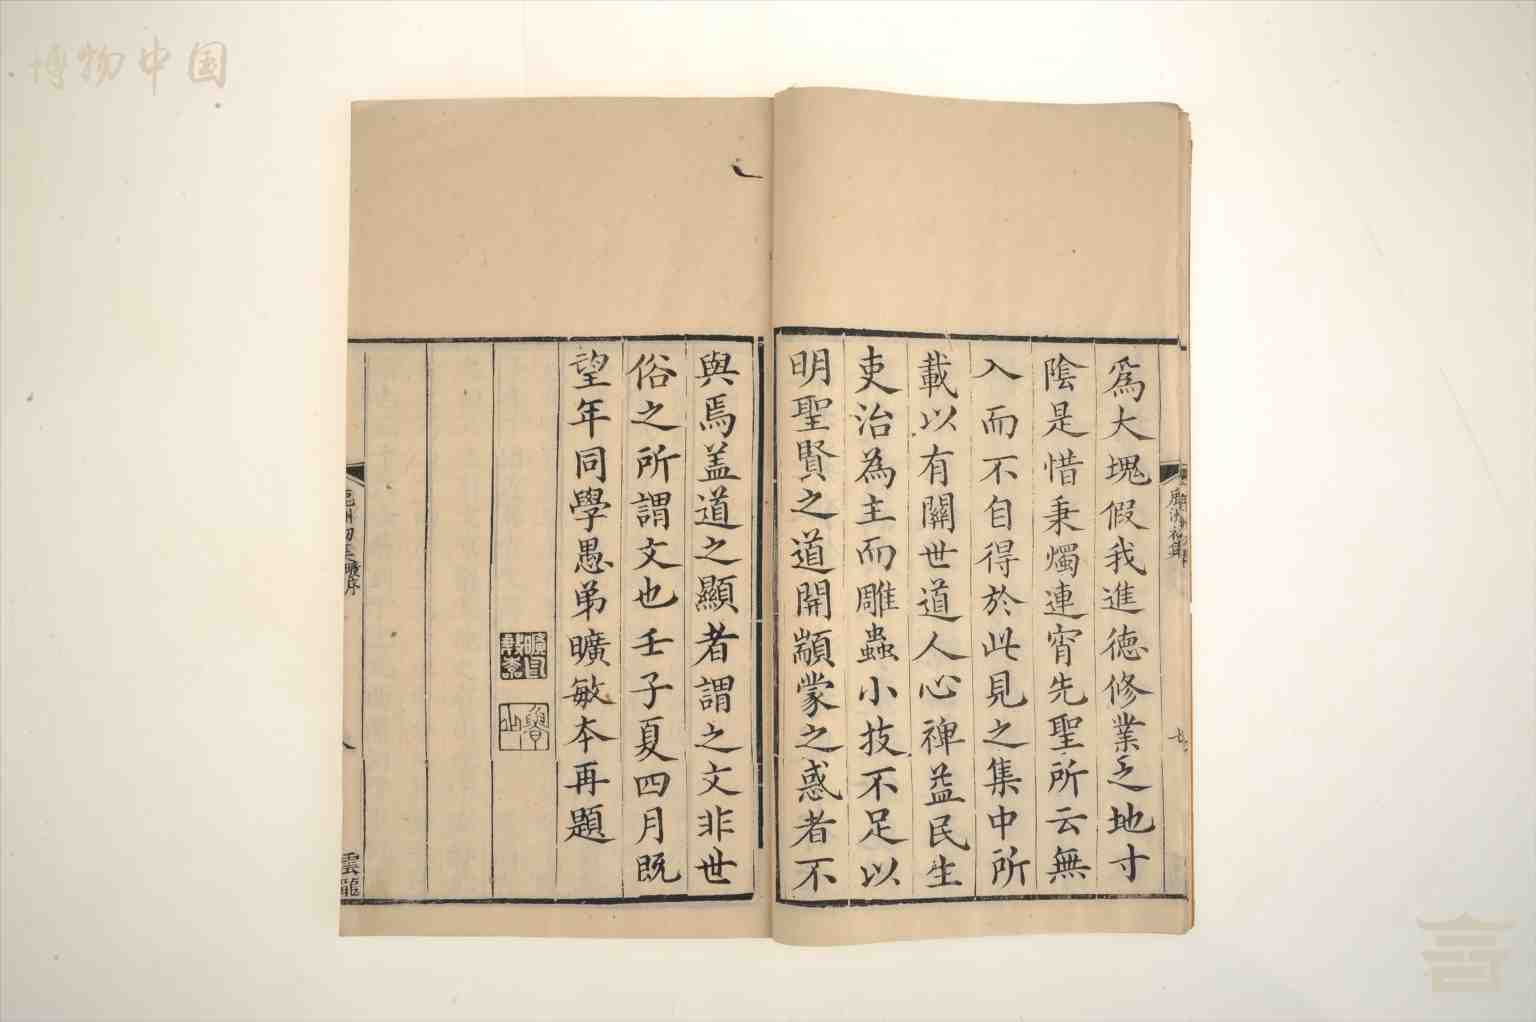 博物中国
爲大塊假我進德修業之地寸
陰是惜秉燭連宵先聖所云無
入而不自得於此見之集中所
載以有關世道人心裨益民生
吏治為主而雕蟲小技不足以
明聖賢之道開顓蒙之惑者不
與焉盖道之顯者謂之文非世
俗之所謂文也壬子夏四月既
望年同學愚弟曠敏本再題
雲龍